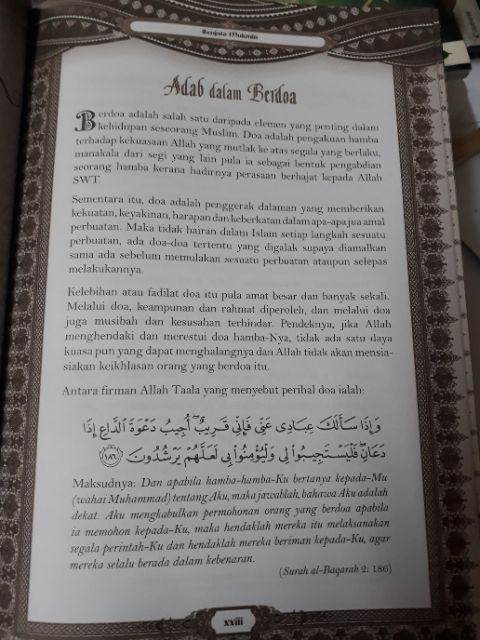 Senjata Mukmin
Adab dalam Berdoa
Berdoa adalah salah satu daripada elemen yang penting dalam
kehidupan seseorang Muslim. Doa adalah pengakuan hamba
terhadap kekuasaan Allah yang mutlak ke atas segala yang berlaku,
manakala dari segi yang lain pula ia sebagai bentuk pengabdian
seorang hamba kerana hadirnya perasaan berhajat kepada Allah
SWT.
Sementara itu, doa adalah penggerak dalaman yang memberikan
kekuatan, keyakinan, harapan dan keberkatan dalam apa-apa jua amal
perbuatan. Maka tidak hairan dalam Islam setiap langkah sesuatu
perbuatan, ada doa-doa tertentu yang digalak supaya diamalkan
sama ada sebelum memulakan sesuatu perbuatan ataupun selepas
melakukannya.
Kelebihan atau fadilat doa itu pula amat besar dan banyak sekali.
Melalui doa, keampunan dan rahmat diperoleh, dan melalui doa
juga musibah dan kesusahan terhindar. Pendeknya, jika Allah
menghendaki dan merestui doa hamba-Nya, tidak ada satu daya
kuasa pun yang dapat menghalangnya dan Allah tidak akan mensia-
siakan keikhlasan orang yang berdoa itu.
Antara firman Allah Taala yang menyebut perihal doa ialah:
وَإِذَا سَأَلَكَ عِبَادِى عَنِّى فَإِنِّى قَرِيبٌ ۖ أُجِيبُ دَعْوَةَ ٱلدَّاعِ إِذَا
دَعَانِ ۖ فَلْيَسْتَجِيبُوا۟ لِى وَلْيُؤْمِنُوا۟ بِى لَعَلَّهُمْ يَرْشُدُونَ ﴿١٨٦﴾
Maksudnya: Dan apabila hamba-hamba-Ku bertanya kepada-Mu
(wahai Muhammad) tentang Aku, maka jawablah, bahawa Aku adalah
dekat. Aku mengkabulkan permohonan orang yang berdoa apabila
ia memohon kepada-Ku, maka hendaklah mereka itu melaksanakan
segala perintah-Ku dan hendaklah mereka beriman kepada-Ku, agar
mereka selalu berada dalam kebenaran.
(Surah al-Baqarah 2: 186)
xxiii